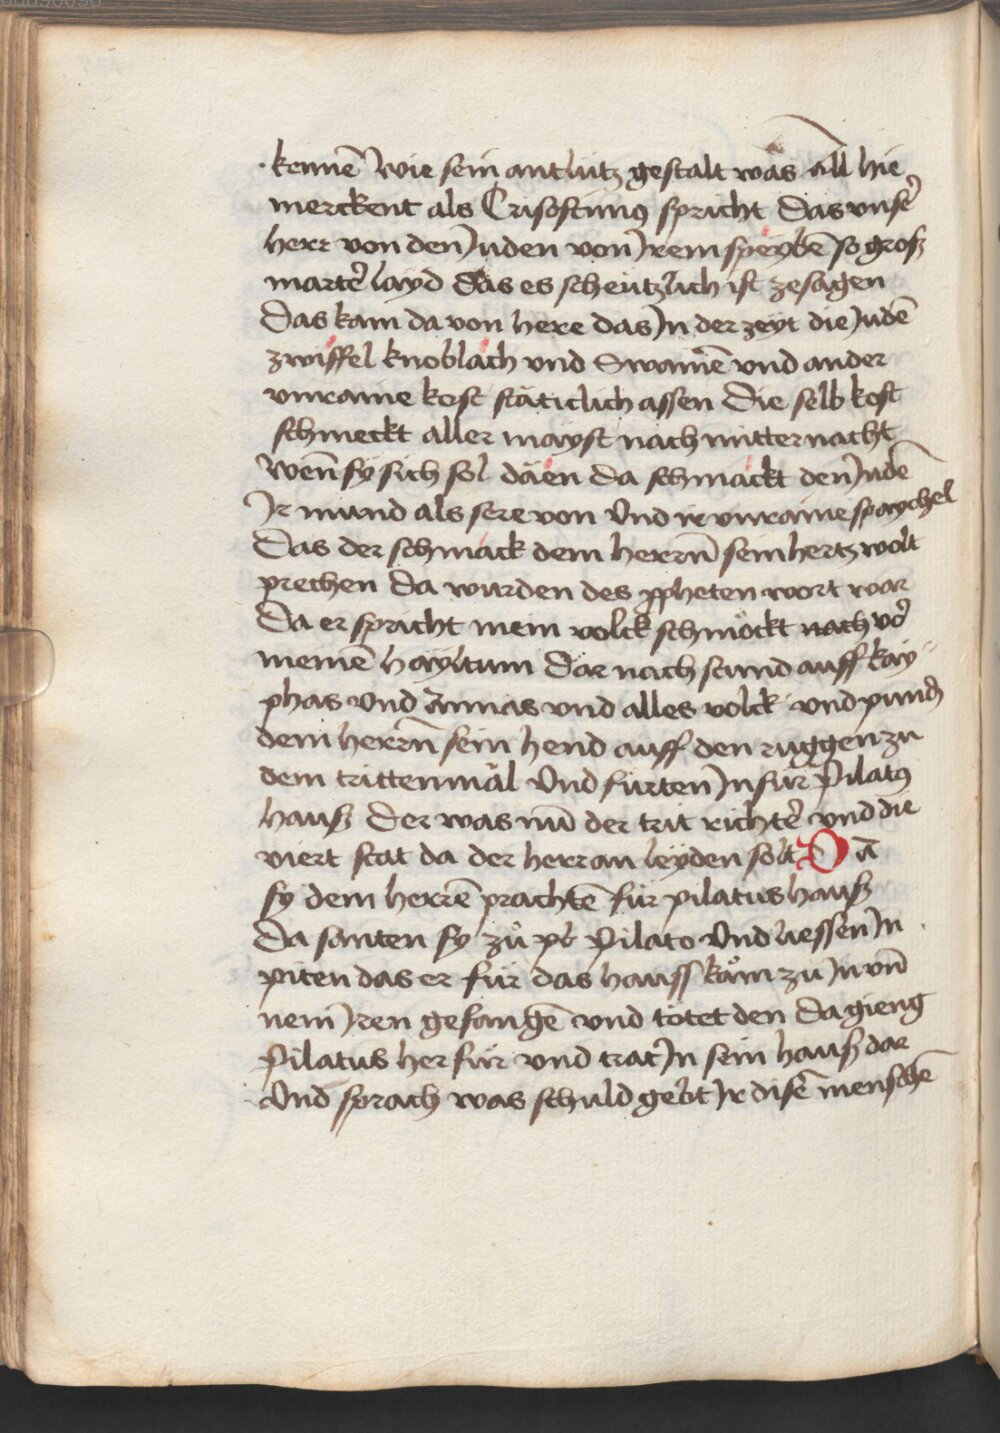 kennē wie sein antlütz gestalt was All hie
merckent als Crisostimꝰ spricht Das vnsẽ
herr von den Juden von Jrem speyben so groß
martẽ layd das es scheützlich ist zesagen
Das kam da von here das Jn der zeyt die Judē
zwiffel knoblach vnd Swamē vnd ander
vnraine kost stäticlich assen Die selb kost
schmeckt aller mayst nach mitternacht
wen̄ sy sich sol däen da schmackt den Judē
Jr mund als sere von Vnd ir vnraine spaychel
Das der schmack dem herrn̄ sein hertz wolt
prechen Da wurden des ꝓpheten wort war
Da er spricht mein volck schmöckt nach vō
meinē hayltum Dar nach stund auff kay
phas Vnd Annas vnd alles volck vnd pundē
dem herrn̄ sein hend auff den ruggen zu
dem trittenmäl Vnd fürten Jn für Pilatꝰ
hauß Der was nū der trit richtẽ vnd die
viert stat da der herr an leyden solt Dā
sy dem herrē prachtē für pilatus hauß
Da santen sy zů Pilato Vnd liessen Jn
piten das er für das hauss käm zu Jn vn̄
nem Jren gefangē vnd tötet den Da gieng
Pilatus her für vnd trat Jn sein hauß dar
Vnd sprach was schuld gebt Jr disē menschē